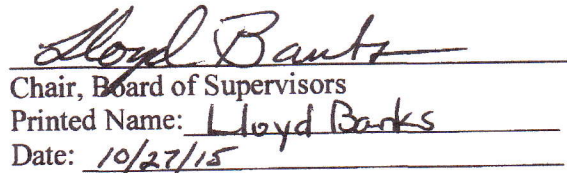 Lloyd Banks
Chair, Board of Supervisors
Printed Name: Lloyd Banks
Date: 10/27/15